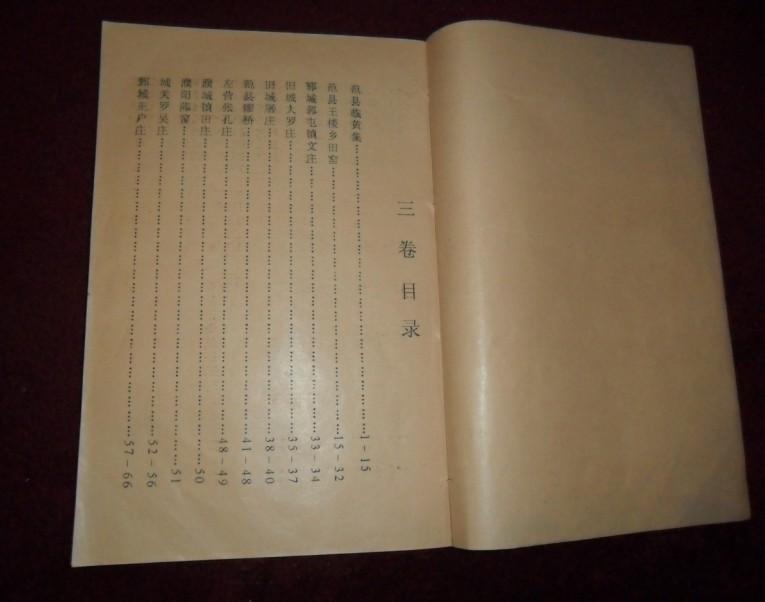 三卷目录
范县临黄集……1－15
范县王楼乡田窑……15－32
鄄城郭屯镇文庄……33－34
旧城大罗庄……35－37
旧城 庄……38－40
范县 桥……41－48
左营张孔庄……48－49
濮城镇田庄……50
濮阳 窑……51
城关罗吴庄……52－56
鄄城 庄……57－66